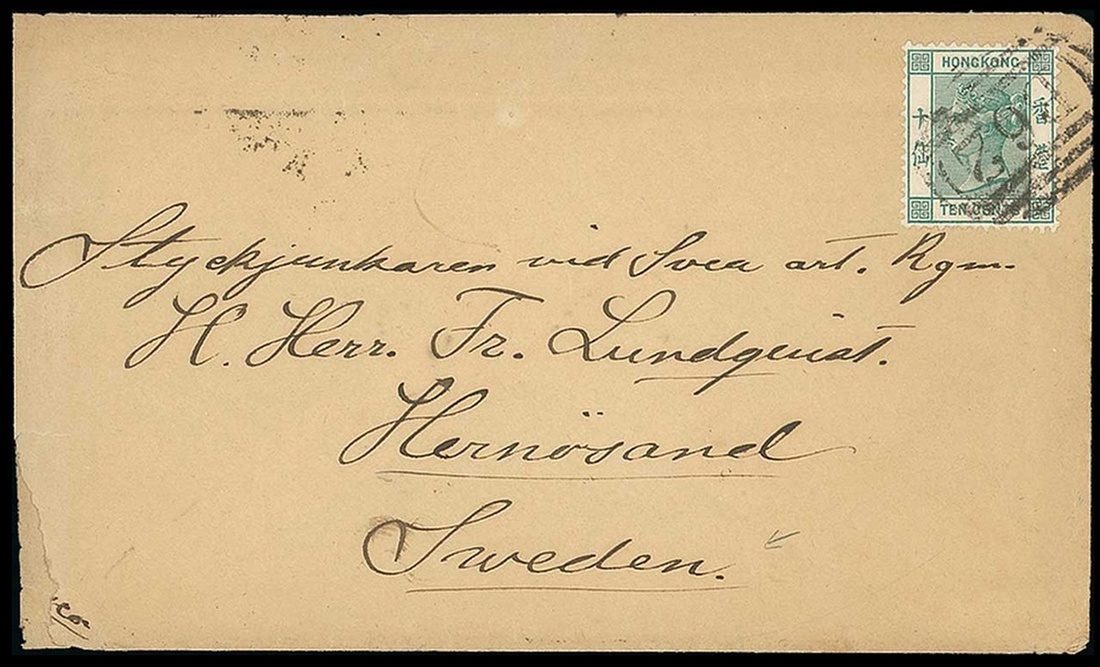 HONGKONG
香港
十仙
TEN CENTS
Styckjunkaren vid Svea art. Rgm.
H. Herr. Fr. Lundquist.
Hernösand
Sweden.